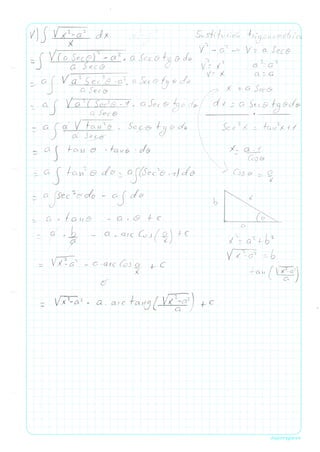 V) ∫ √(x²-a²) / x dx
Sustitución trigonométrica
V² - a² → V = a Secθ
V² = x² a² = a²
V = x a = a
x = a Secθ
dx = a Secθ tgθ dθ
Sec²x = tan²x + 1
x = a · 1 / Cosθ
Cosθ = a/x
= ∫ √((a Secθ)² - a²) / a Secθ · a Secθ tgθ dθ
= a∫ √(a² Sec²θ - a²) / a Secθ · Secθ tgθ dθ
= a∫ √(a²(Sec²θ - 1)) / a Secθ · a Secθ tanθ dθ
= a∫ a √(tan²θ) / a Secθ · Secθ tgθ dθ
= a∫ tanθ · tanθ · dθ
= a∫ tan²θ dθ = a∫(Sec²θ - 1) dθ
= a∫ sec²θ dθ - a∫ dθ
= a · tanθ - a · θ + c
= a · b/a - a · arc Cos(a/x) + c
= √(x²-a²) - a · arc Cos a/x + c
o
= √(x²-a²) - a · arc tang(√(x²-a²) / a) + c
b
x
θ
a
x² = a² + b²
√(x²-a²) = b
tan(√(x²-a²) / a)